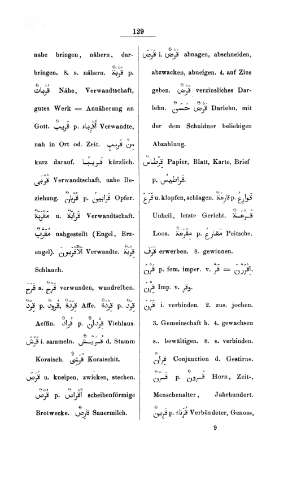 129
nahe bringen, nähern, dar-
bringen. 8. s. nähern. p. قِرْبَة
Nähe, Verwandtschaft,
gutes Werk — Annäherung an
Gott. قَرِيب p. Verwandte,
nah in Ort od. Zeit.
kurz darauf. قَرِيبًا kürzlich.
Verwandtschaft, nahe Be-
ziehung. قُرْبَان p. قَرَابِين Opfer.
قَرَابَة u. Verwandtschaft.
مُقَرَّب nahgestellt (Engel, Erz-
engel). Verwandte. قِرْبَة
Schlauch.
verwunden, wundreiben.
قِرْد p. Affe. قِرْدَة p.
Aeffin. قُرَاد p. قِرْدَان Viehlaus
قرش i. sammeln. قُرَيْش d. Stamm
Koraisch. قُرَشِيّ Koraischit.
قرص u. kneipen, zwicken, stechen.
قُرْص p. أَقْرَاص scheibenförmige
Brotwecke. Sauermilch.
قرض i. abnagen, abschneiden,
abzwacken, abneigen. 4. auf Zins
geben. قَرْض verzinsliches Dar-
lehn. قَرْض حَسَن Darlehn, mit
der dem Schuldner beliebiger
Abzahlung.
قِرْطَاس Papier, Blatt, Karte, Brief
p. قَرَاطِيس.
قرع u. klopfen, schlagen. قَارِعَة p. قَوَارِع
Unheil, letzte Gericht. قُرْعَة
Loos. مِقْرَعَة p. مَقَارِع Peitsche.
قرف erwerben. 8. gewinnen.
قِرْنَ p. fem. imper. v.
قِرْنَ Imp. v. وقر.
قرن i. verbinden. 2. zus. jochen.
3. Gemeinschaft h. 4. gewachsen
s., bewältigen. 8. s. verbinden.
قِرَان Conjunction d. Gestirne.
قَرْن p. قُرُون Horn, Zeit-,
Menschenalter, Jahrhundert.
قَرِين p. قُرَنَاء Verbündeter, Genoss,
9